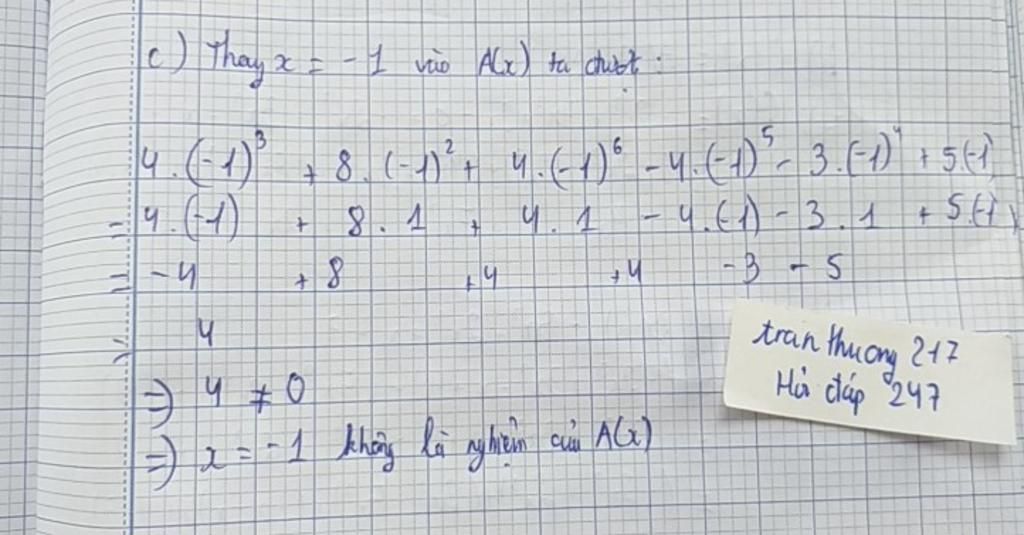 c) Thay x = -1 vào A(x) ta được :
4.(-1)³ + 8.(-1)² + 4.(-1)⁶ - 4.(-1)⁵ - 3.(-1)⁴ + 5.(-1)
= 4.(-1) + 8.1 + 4.1 - 4.(-1) - 3.1 + 5.(-1)
= -4 + 8 +4 +4 -3 - 5
= 4
=> 4 ≠ 0
=> x = -1 không là nghiệm của A(x)
tran thuong 217
Hỏi đáp 247